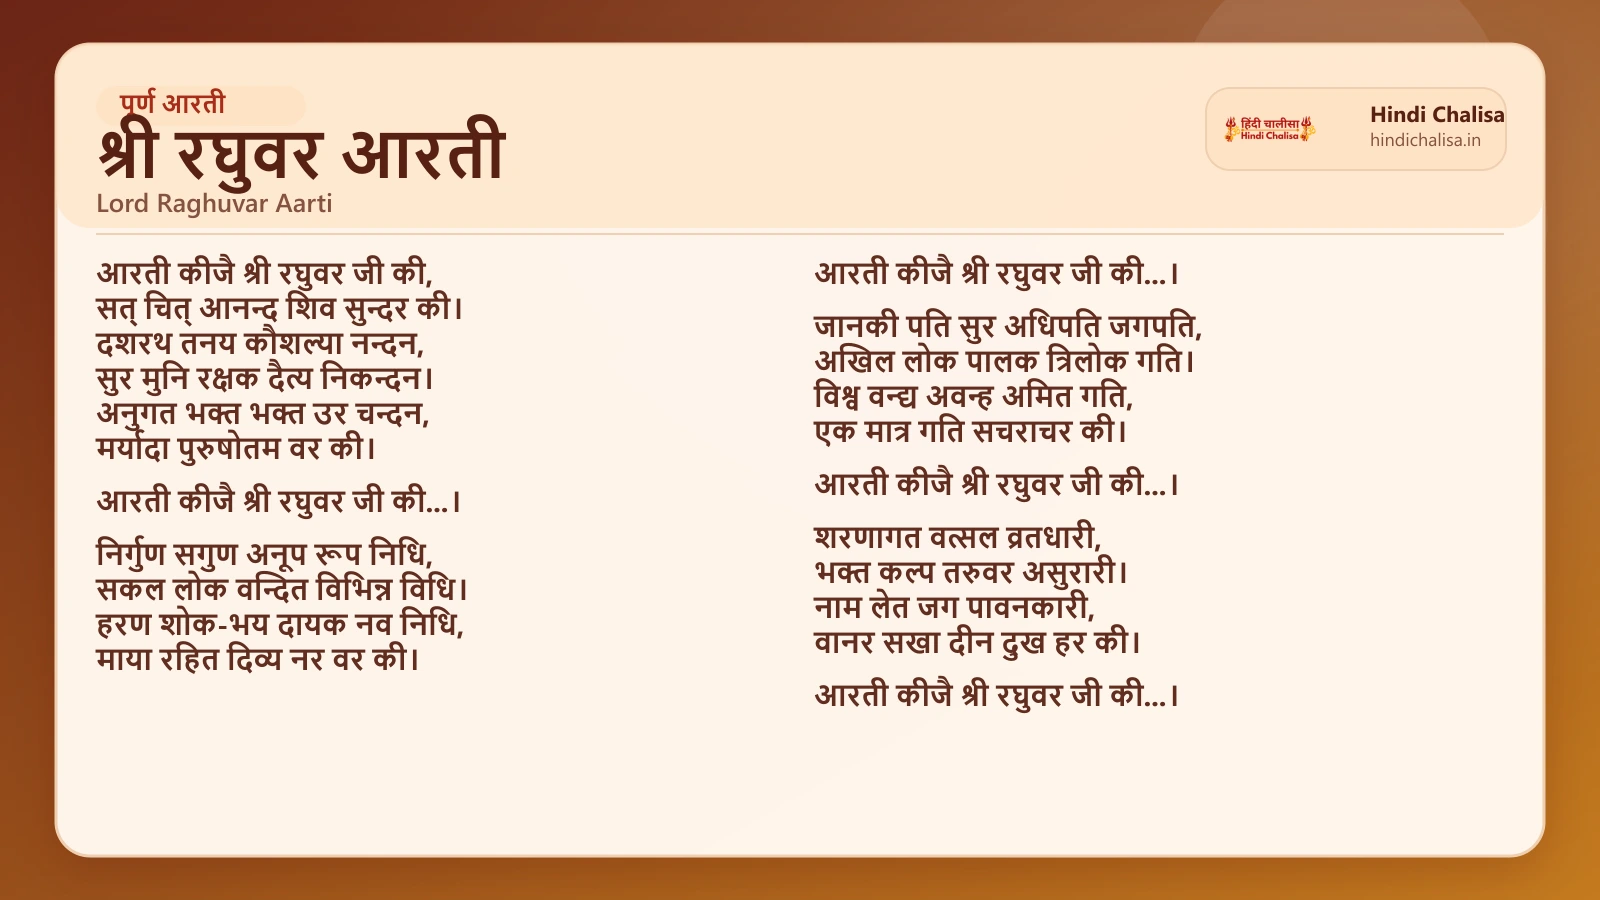 पूर्ण आरती
श्री रघुवर आरती
Lord Raghuvar Aarti
हिंदी चालीसा
Hindi Chalisa
Hindi Chalisa
hindichalisa.in
आरती कीजै श्री रघुवर जी की,
सत् चित् आनन्द शिव सुन्दर की।
दशरथ तनय कौशल्या नन्दन,
सुर मुनि रक्षक दैत्य निकन्दन।
अनुगत भक्त भक्त उर चन्दन,
मर्यादा पुरुषोतम वर की।
आरती कीजै श्री रघुवर जी की...।
निर्गुण सगुण अनूप रूप निधि,
सकल लोक वन्दित विभिन्न विधि।
हरण शोक-भय दायक नव निधि,
माया रहित दिव्य नर वर की।
आरती कीजै श्री रघुवर जी की...।
जानकी पति सुर अधिपति जगपति,
अखिल लोक पालक त्रिलोक गति।
विश्व वन्द्य अवन्ह अमित गति,
एक मात्र गति सचराचर की।
आरती कीजै श्री रघुवर जी की...।
शरणागत वत्सल व्रतधारी,
भक्त कल्प तरुवर असुरारी।
नाम लेत जग पावनकारी,
वानर सखा दीन दुख हर की।
आरती कीजै श्री रघुवर जी की...।